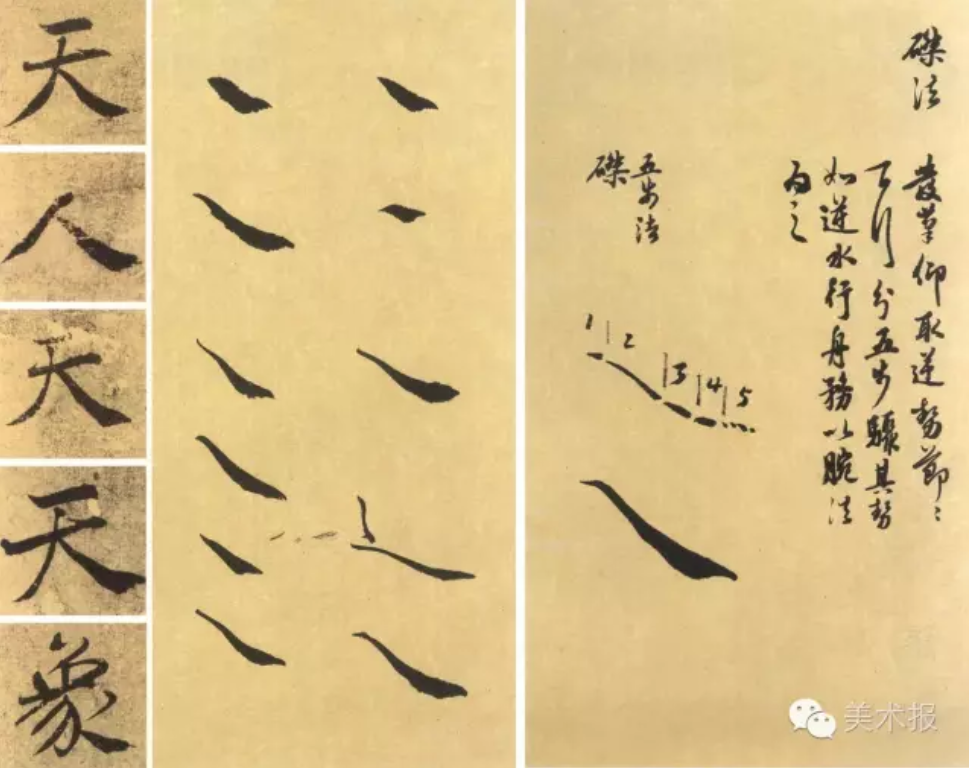 天
人
天
天
象
磔法
發筆仰取逆勢節〻
下行分五步驟其勢
如逆水行舟務以腕法
為之
五步法
磔
1 2 3 4 5
美术报